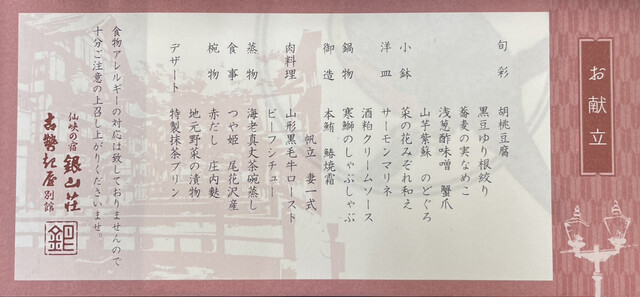 お献立
旬彩 胡桃豆腐
黒豆ゆり根絞り
蕎麦の実なめこ
浅葱酢味噌 蟹爪
山芋紫蘇 のどぐろ
小鉢 菜の花みぞれ和え
洋皿 サーモンマリネ
酒粕クリームソース
鍋物 寒鰤のしゃぶしゃぶ
御造 本鮪 鰆焼霜
帆立 妻一式
肉料理 山形黒毛牛ロースト
ビーフシチュー
蒸物 海老真丈茶碗蒸し
食事 つや姫 尾花沢産
椀物 赤だし 庄内麩
地元野菜の漬物
デザート 特製抹茶プリン
食物アレルギーの対応は致しておりませんので
十分ご注意の上召し上がりくださいませ。
仙峡の宿 銀山荘
古勢起屋 別館